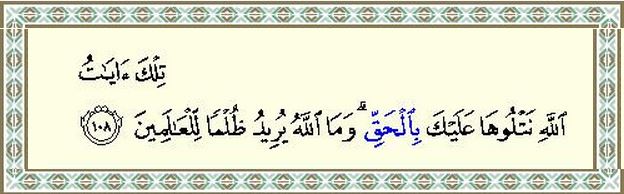 تِلۡكَ ءَايَٰتُ
ٱللَّهِ نَتۡلُوهَا عَلَيۡكَ بِٱلۡحَقِّۗ وَمَا ٱللَّهُ يُرِيدُ ظُلۡمٗا لِّلۡعَٰلَمِينَ ١٠٨